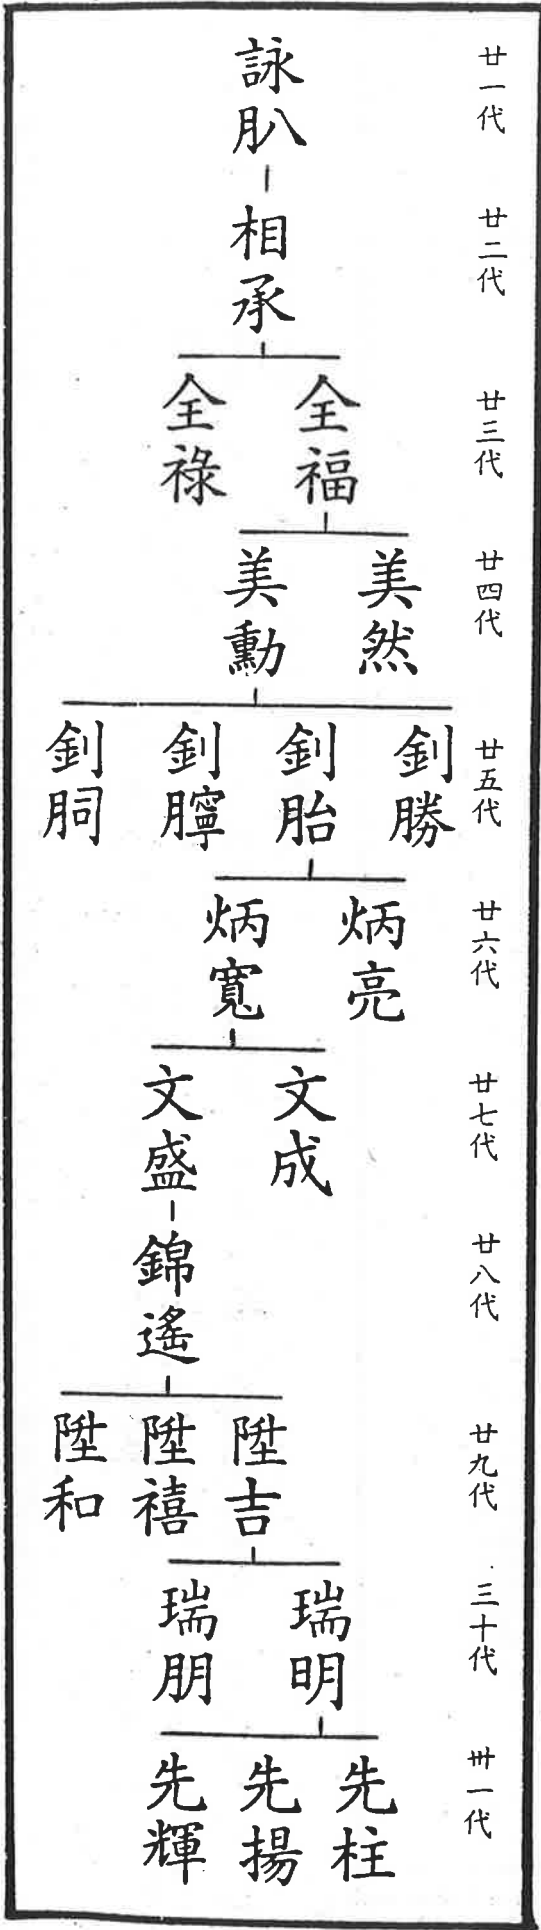 廿一代
詠肌
廿二代
相承
廿三代
全福
全祿
廿四代
美然
美勳
廿五代
釗勝
釗胎
釗膵
釗胴
廿六代
炳亮
炳寬
廿七代
文成
文盛
廿八代
錦遙
廿九代
陞吉
陞禧
陞和
三十代
瑞明
瑞朋
卅一代
先柱
先揚
先輝